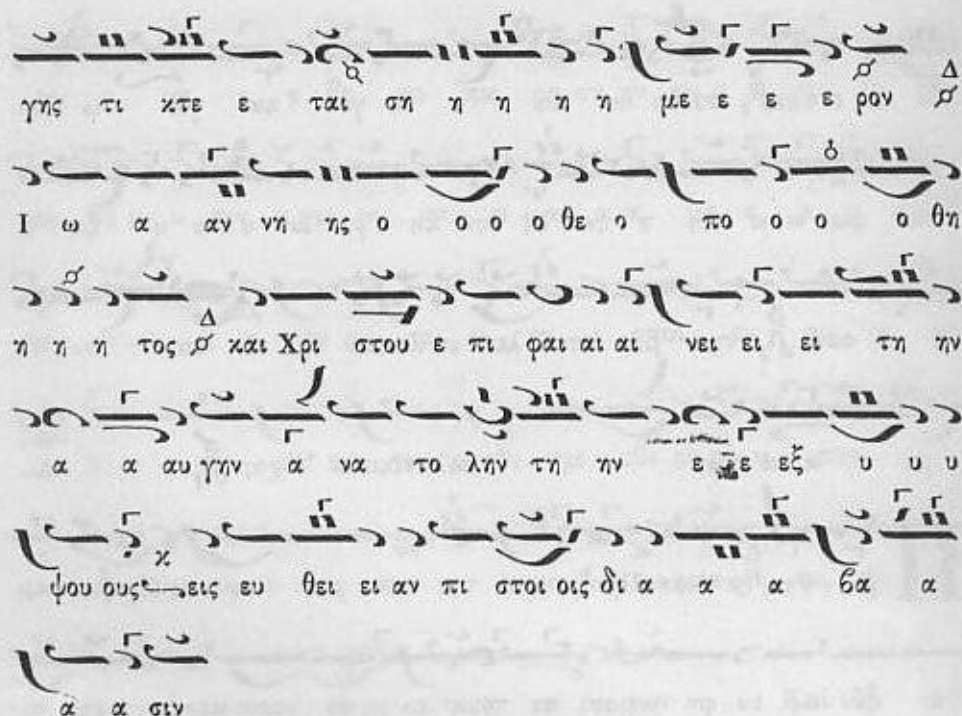 γης τι κτε ε ται ση η η η η με ε ε ε ρον Δ
Ι ω α αν νη ης ο ο ο ο θε ο πο ο ο ο θη
η η η τος Δ και Χρι στου ε πι φαι αι αι νει ει ει τη ην
α α αυ γην α να το λην τη ην ε ε εξ υ υ υ
ψου ους εις ευ θει ει αν πι στοι οις δι α α α βα α
α α σιν